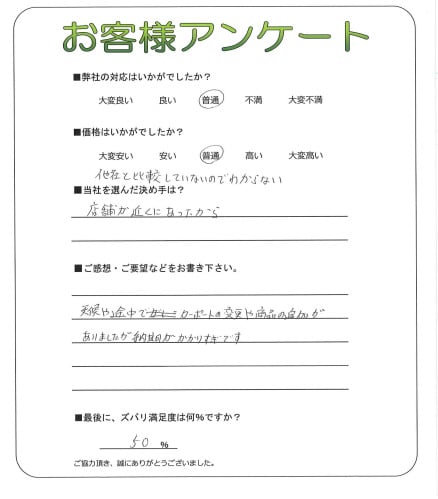 お客様アンケート
■弊社の対応はいかがでしたか？
大変良い 良い 普通 不満 大変不満
■価格はいかがでしたか？
大変安い 安い 普通 高い 大変高い
他社と比較していないのでわからない
■当社を選んだ決め手は？
店舗が近くにあったから
■ご感想・ご要望などをお書き下さい。
天候や途中で カーポートの変更や商品の追加が
ありましたが納期がかかりすぎです
■最後に、ズバリ満足度は何%ですか？
50 %
ご協力頂き、誠にありがとうございました。